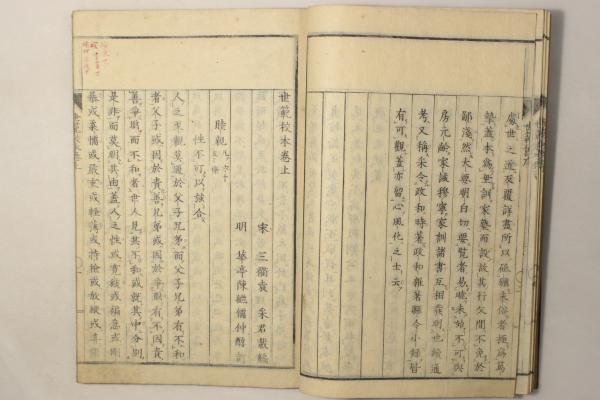 處世之道反覆詳盡所以砥礪末俗者極爲篤
摯蓋本爲垂訓家塾而設故其行欠間不免於
鄙淺然大要明白切要覽者易曉未始不可與
房元齡家誡穆寧家訓諸書互相發明也續通
考又稱采令政和時著政和雜著縣令小錄皆
有可觀蓋亦留心風化之士云
世範校本卷上
宋 三衢袁 采君載編
明 華亭陳繼儒仲醇訂
睦親
性不可以強合
人之至親莫過於父子兄弟而父子兄弟有不和
者父子或因於責善兄弟或因於爭財有不因責
善爭財而不和者世人見其不和或就其中分別
是非而莫明其由蓋人之性或寬緩或褊急或剛
暴或柔懦或嚴重或輕薄或持撿或放縱或喜